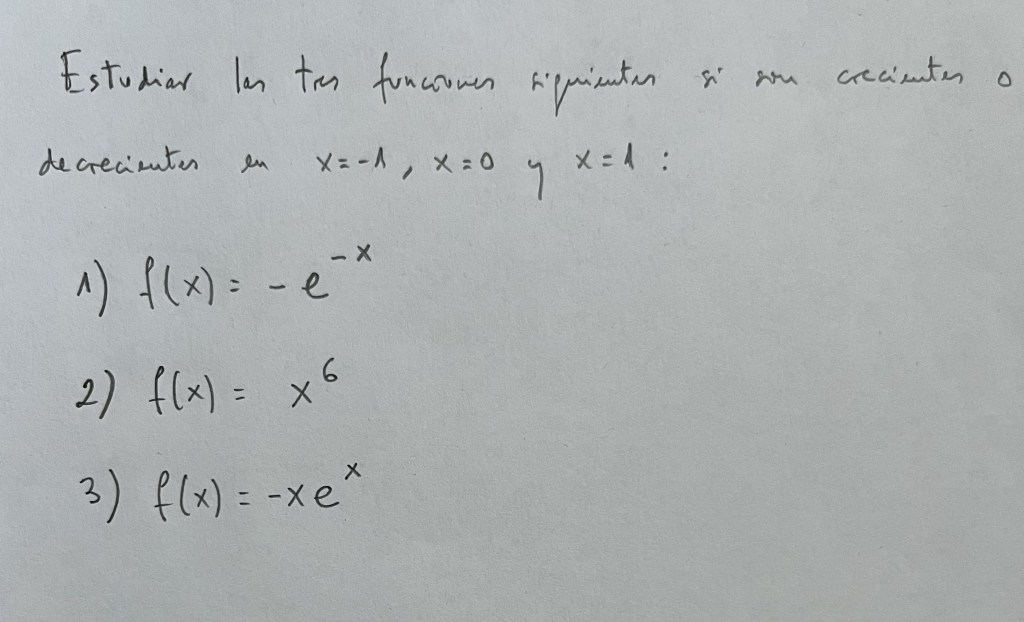 Estudiar las tres funciones siguientes si son crecientes o
decrecientes en x=-1, x=0 y x=1:
1) f(x) = -e^{-x}
2) f(x) = x^6
3) f(x) = -xe^x